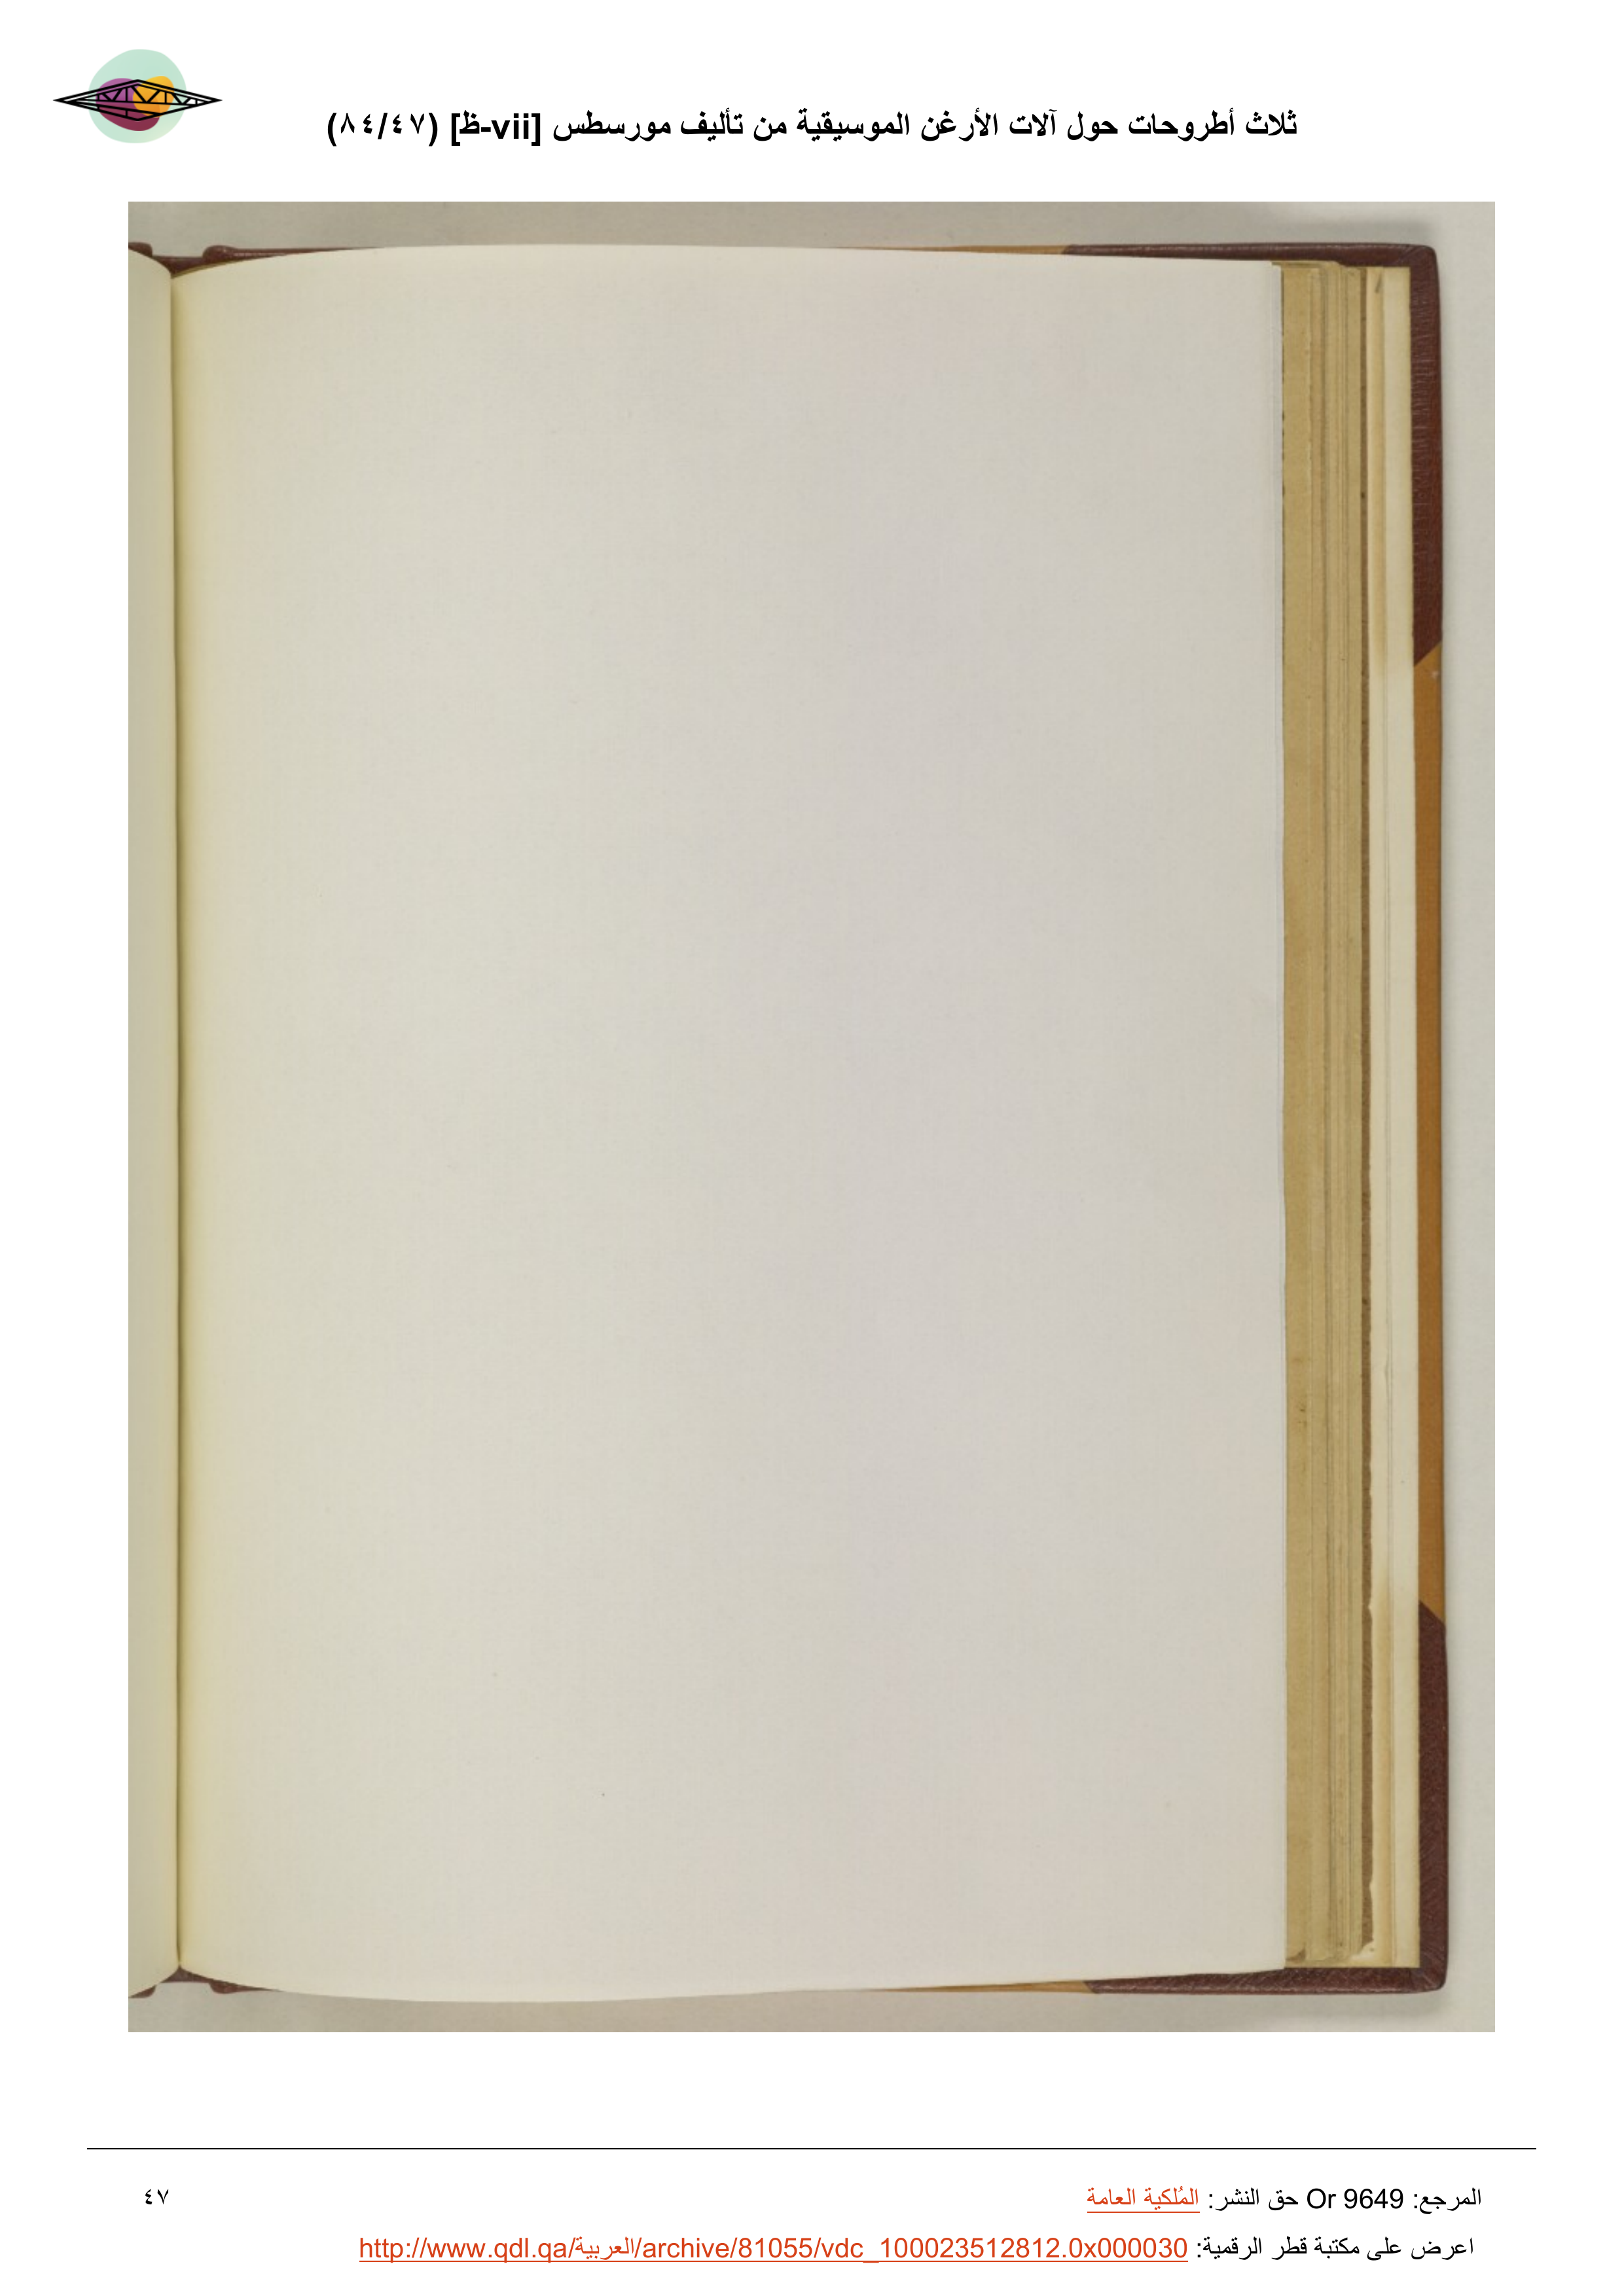 ثلاث أطروحات حول آلات الأرغن الموسيقية من تأليف مورسطس [vii-ظ] (٨٤/٤٧)
المرجع: Or 9649 حق النشر: المُلكية العامة
٤٧
اعرض على مكتبة قطر الرقمية: http://www.qdl.qa/العربية/archive/81055/vdc_100023512812.0x000030